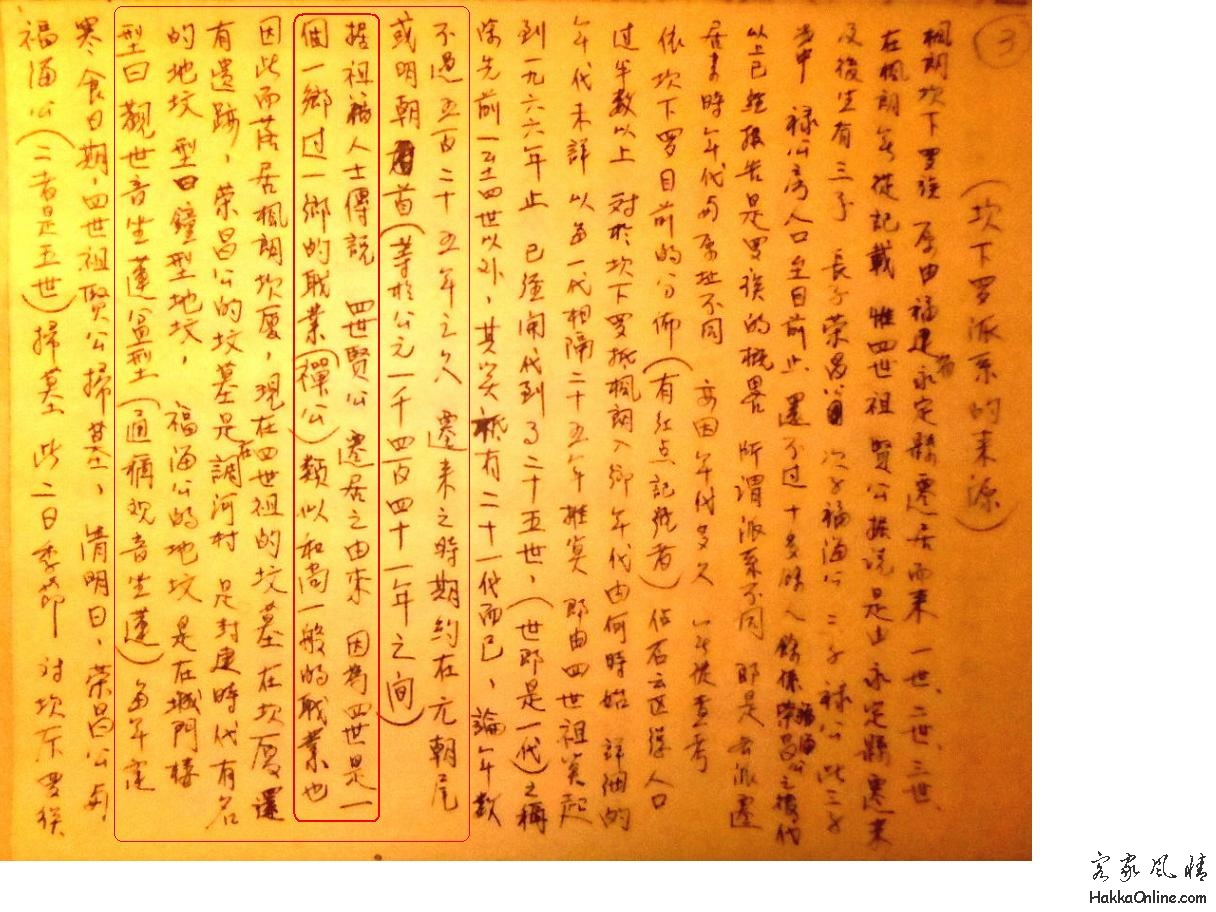 3
(坎下罗派系的来源)
楓朗坎下罗族 原由福建永定縣遷居而来 一世、二世、三世、
在楓朗無從記載 惟四世祖 賢公据说是由永定縣遷来
及後生有三子 長子荣昌公 次子福海公 三子 禄公 此三子
当中 禄公房人口至目前止 還不过十多餘人 餘係荣昌公福海公之後代
以上已經报告是罗族的概畧 所謂派系不同 即是
居来時年代与原址不同 亦因年代多久 無從查考
依坎下罗目前的分佈(有红点記號者)佔 区 人口
过半数以上 对於坎下罗抵楓朗入鄉年代由何時始 詳细的
年代未詳 以每一代相隔二十五年 推算 即由四世祖算起
到一九六六年止 已经 代到了二十五世、(世即是一代)之稱
除先前一至四世以外、其实祗有二十一代而已、論年数
不過五百二十五年之久 遷来之時期约在元朝尾
或明朝首(等於公元一千四百四十一年之间)
据祖籍人士傳説 四世賢公 遷居之由來 因為四世是一
個一鄉过一鄉的职業(禪公)類似和尚一般的职業也
因此而落居楓朗坎厦,現在四世祖的坟墓在坎厦還
有遺跡,荣昌公的坟墓是在調河村 是封建時代有名
的地坟 型曰鐘型地坟, 福海公的地坟 是在城門樓
型曰觀世音坐蓮盆型(通稱观音坐蓮)每年定
寒食日期,四世祖賢公掃墓、 清明日、荣昌公与
福海公(二者是五世)掃墓 此二日季節 对坎下罗族
客家风情
HakkaOnline.com